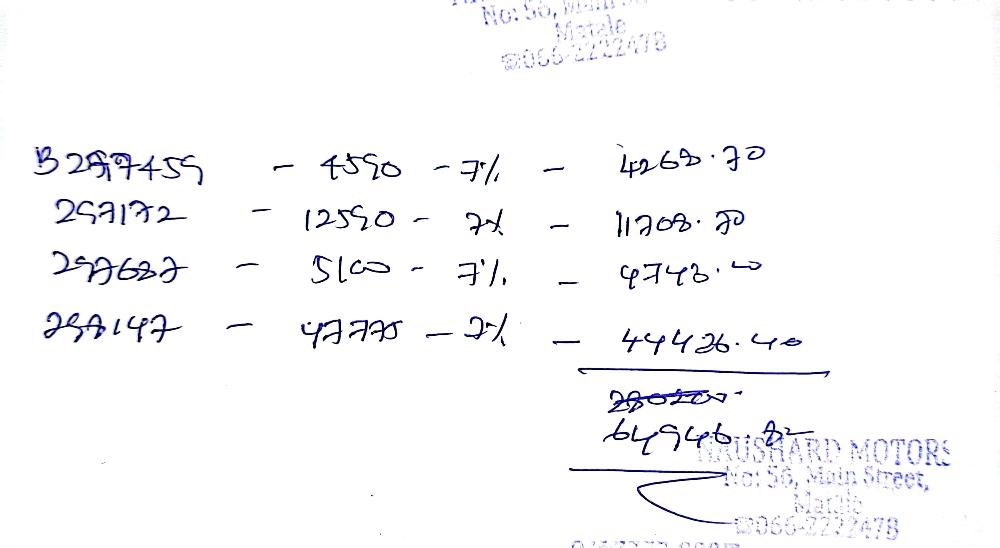 No: 56, Main
Matale
☎066-2222478
B 297459 - 4590 - 7% - 4268.70
297172 - 12590 - 7% - 11708.70
297687 - 5100 - 7% - 4743.00
297147 - 47775 - 7% - 44426.40
64946.82
NAUSHARD MOTORS
No: 56, Main Street,
Matale
☎066-2222478